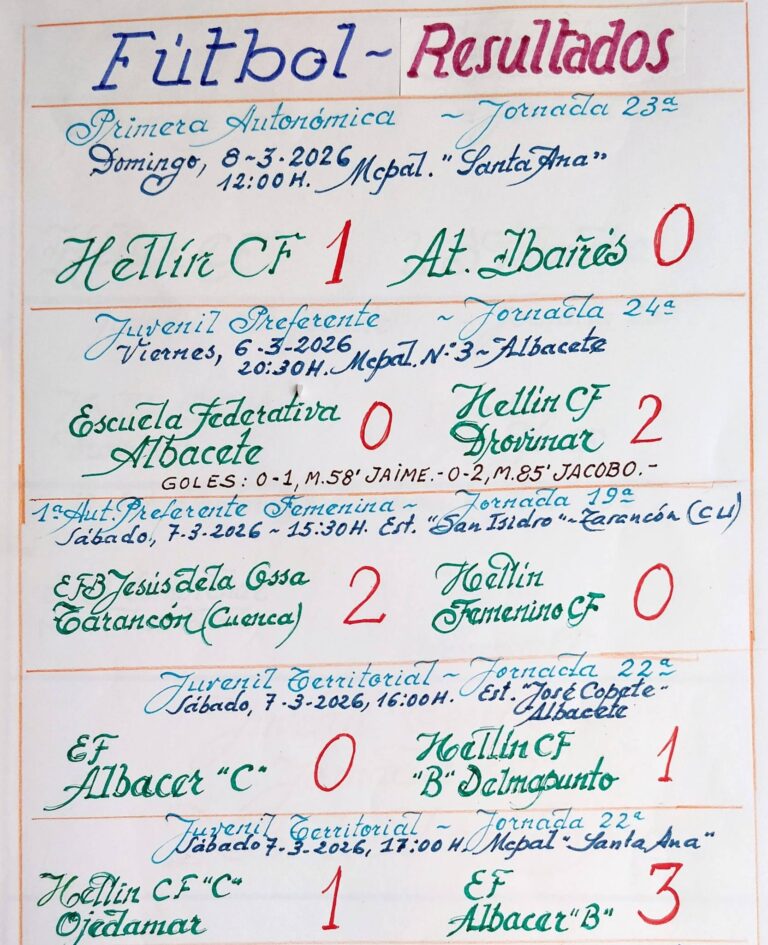 Fútbol ~ Resultados
Primera Autonómica ~ Jornada 23ª
Domingo, 8-3-2026
12:00H. Mcpal. "Santa Ana"
Hellín CF 1 At. Ibañés 0
Juvenil Preferente ~ Jornada 24ª
Viernes, 6-3-2026
20:30H. Mcpal. Nº3 ~ Albacete
Escuela Federativa
Albacete 0
Hellín CF
Drovimar 2
GOLES: 0-1, M.58' JAIME.- 0-2, M.85' JACOBO.-
1ª Aut. Preferente Femenina ~ Jornada 19ª
Sábado, 7-3-2026 ~ 15:30H. Est. "San Isidro" ~ Tarancón (CU)
EFB Jesús de la Ossa
Tarancón (Cuenca) 2
Hellín
Femenino CF 0
Juvenil Territorial ~ Jornada 22ª
Sábado, 7-3-2026, 16:00H. Est. "José Copete"
Albacete
EF
Albacer "C" 0
Hellín CF
"B" Delmapunto 1
Juvenil Territorial ~ Jornada 22ª
Sábado 7-3-2026, 17:00H. Mcpal "Santa Ana"
Hellín CF "C"
Ojedamar 1
EF
Albacer "B" 3